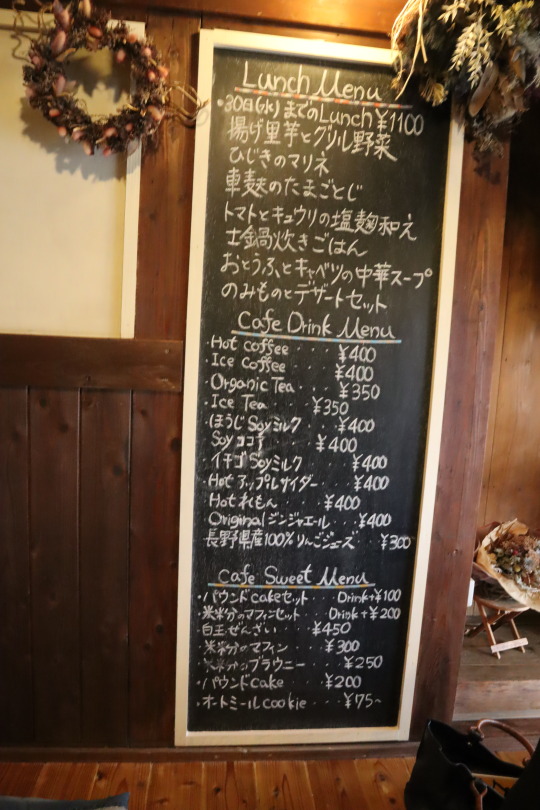 Lunch Menu
・30日(水)までのLunch ¥1100
揚げ里芋とグリル野菜
ひじきのマリネ
車麸のたまごとじ
トマトとキュウリの塩麹和え
土鍋炊きごはん
おとうふとキャベツの中華スープ
のみものとデザートセット
Cafe Drink Menu
・Hot coffee ・・・・ ¥400
・Ice coffee ・・・・ ¥400
・Organic Tea・・・・¥350
・Ice Tea ・・・ ¥350
・ほうじSoyミルク ・・・¥400
・Soyココア ・・・ ¥400
・イチゴSoyミルク ・・・ ¥400
・Hot アップルサイダー ・・・ ¥400
・Hot れもん ・・・ ¥400
・Originalジンジャエール・・・¥400
・長野県産100%りんごジュース ・・¥300
Cafe Sweet Menu
・パウンドcakeセット ・・・Drink+¥100
・米粉のマフィンセット ・・Drink+¥200
・白玉ぜんざい ・・・¥450
・米粉のマフィン ・・・ ¥300
・米粉のブラウニー ・・・¥250
・パウンドcake ・・・ ¥200
・オートミールcookie ・・・¥75~